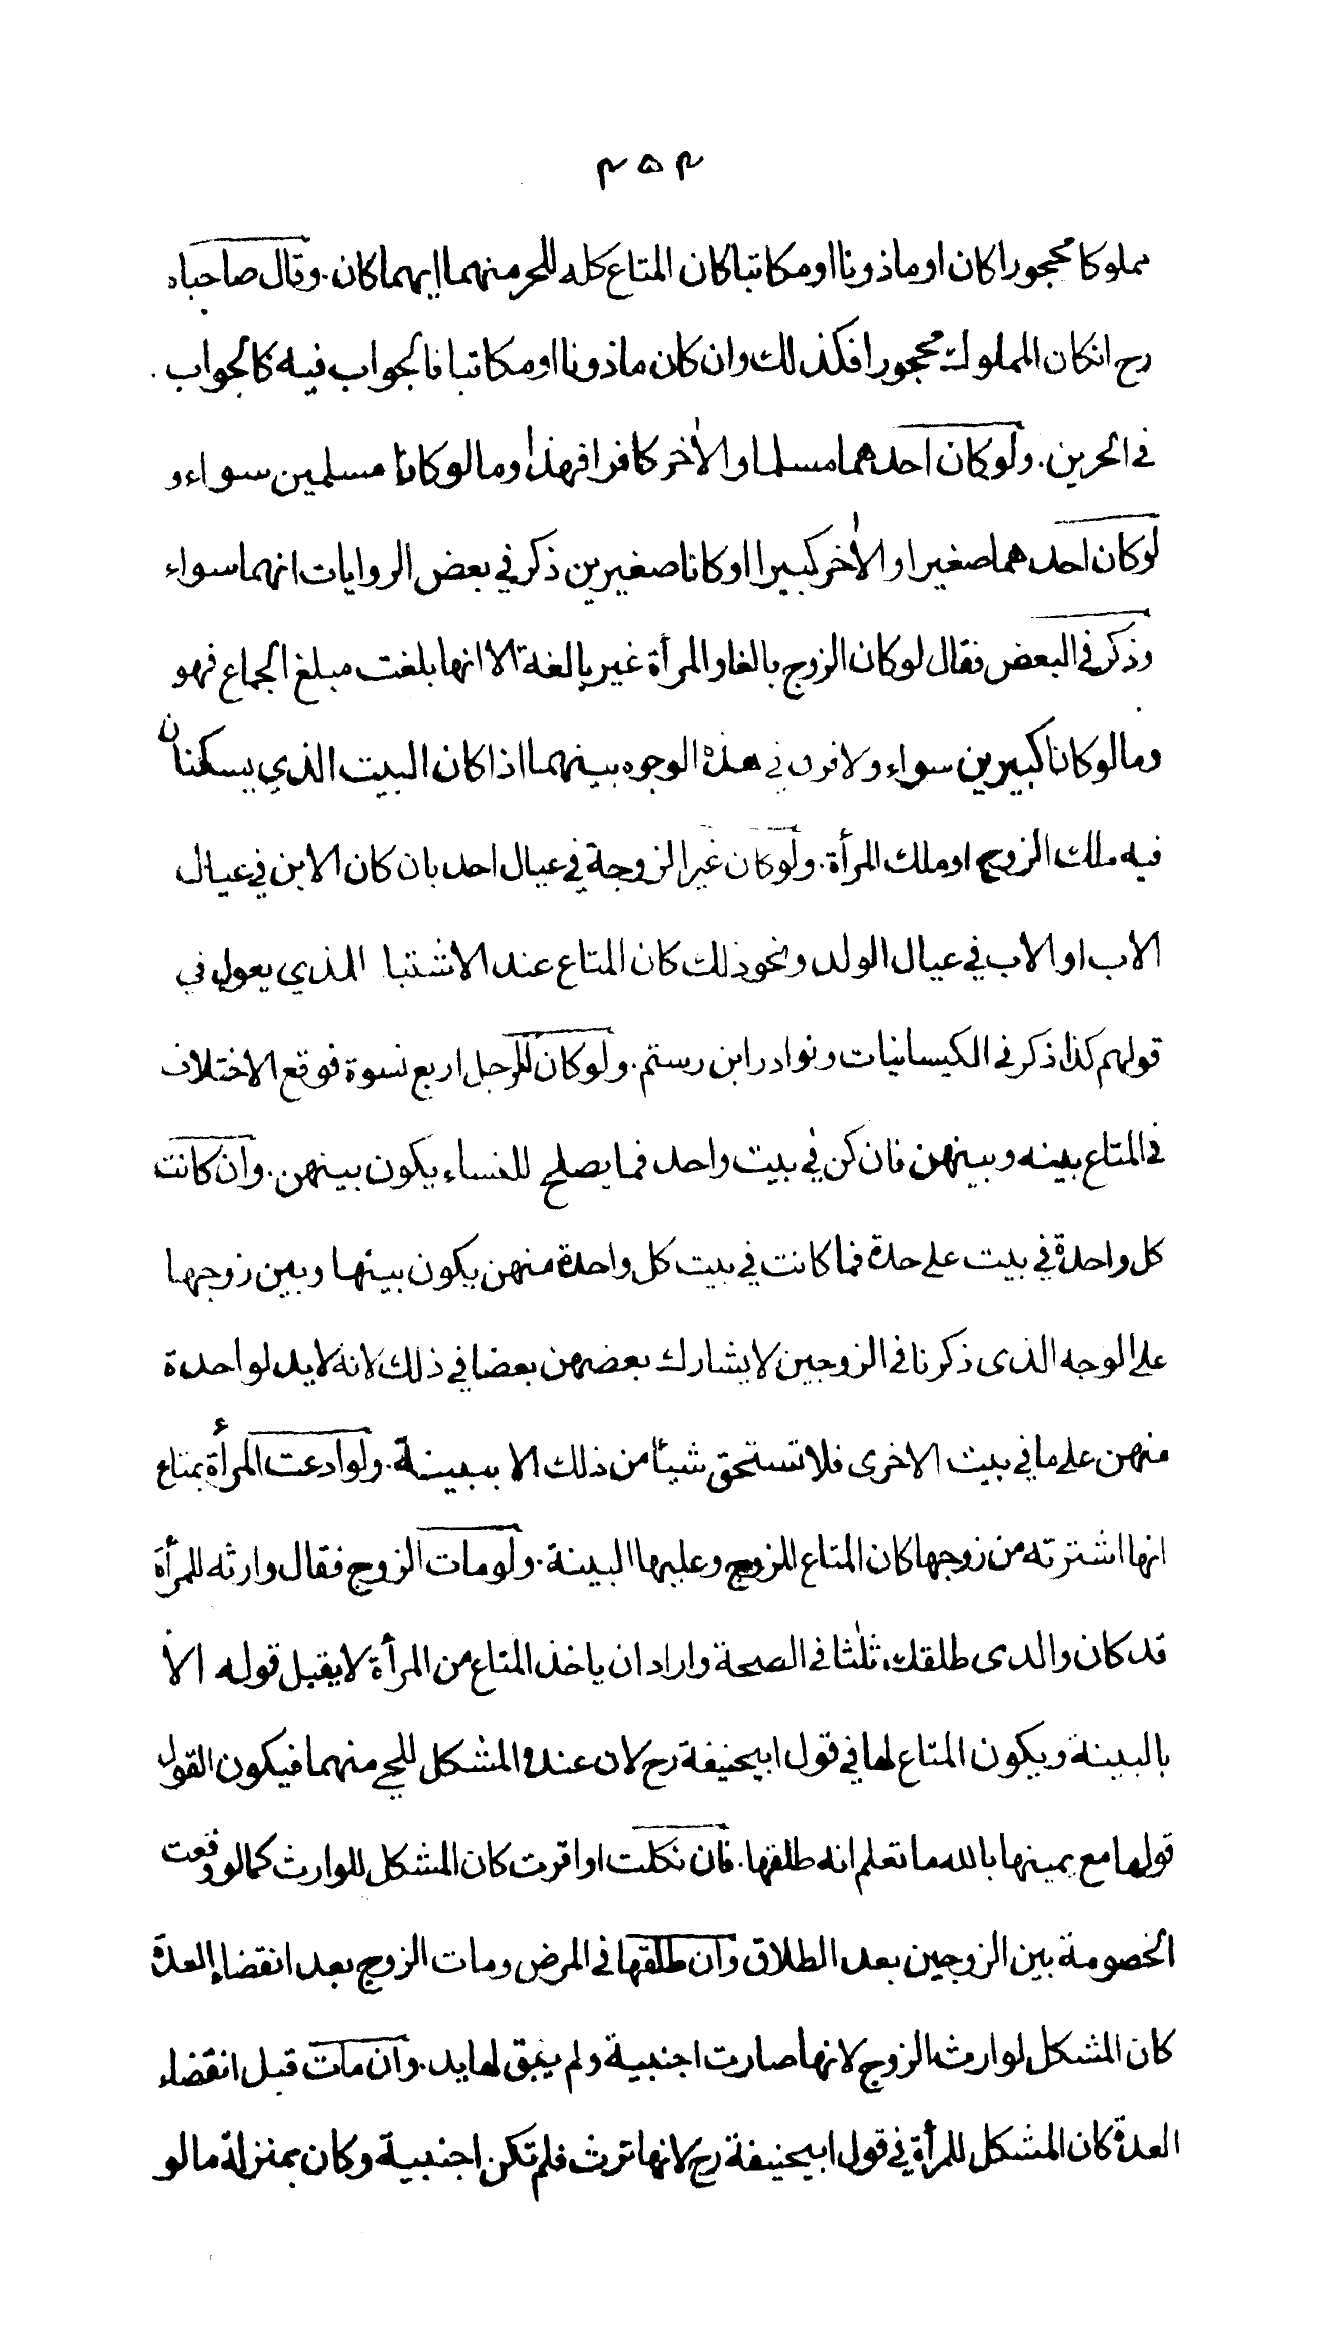 ۴۵۴
مملوكا محجورا كان او ماذونا او مكاتبا كان المتاع كله للحر منهما ايهما كان . وقال صاحباه
رح انكان المملوك محجورا فكذلك وان كان ماذونا او مكاتبا فالجواب فيه كالجواب
فى الحرين . ولوكان احدهما مسلما والاٰخر كافرا فهذا وما لو كانا مسلمين سواء و
لوكان احدهما صغيرا والاٰخر كبيرا او كانا صغيرين ذكر في بعض الروايات انهما سواء
وذكر فى البعض فقال لو كان الزوج بالغا والمرأة غير بالغة الا انها بلغت مبلغ الجماع فهو
وما لو كانا كبيرين سواء ولا فرق في هذه الوجوه بينهما اذا كان البيت الذي يسكنان
فيه ملك الزوج او ملك المرأة . ولوكان غير الزوجة في عيال احد بان كان الابن في عيال
الاب او الاب في عيال الولد ونحو ذلك كان المتاع عند الاشتبا للذي يعول في
قولهم كذا ذكر فى الكيسانيات ونوادر ابن رستم . ولوكان للرجل اربع نسوة فوقع الاختلاف
فى المتاع بينه وبينهن فان كن في بيت واحد فما يصلح للنساء يكون بينهن . وان كانت
كل واحدة في بيت على حدة فما كانت في بيت كل واحدة منهن يكون بينها وبين زوجها
على الوجه الذى ذكرنا فى الزوجين لا يشارك بعضهن بعضا في ذلك لانه لا يد لواحدة
منهن على ما في بيت الاخرى فلا تستحق شيأ من ذلك الا ببينة . ولو ادعت المرأة بمتاع
انها اشترته من زوجها كان المتاع للزوج وعليها البينة . ولو مات الزوج فقال وارثه للمرأة
قد كان والدى طلقك ثلٰثا فى الصحة واراد ان ياخذ المتاع من المرأة لا يقبل قوله الا
بالبينة ويكون المتاع لها في قول ابيحنيفة رح لان عنده المشكل للحي منهما فيكون القول
قولها مع يمينها بالله ما تعلم انه طلقها . فان نكلت او اقرت كان المشكل للوارث كما لو وقعت
الخصومة بين الزوجين بعد الطلاق وان طلقها فى المرض ومات الزوج بعد انقضاء العدة
كان المشكل لوارث الزوج لانها صارت اجنبية ولم يبق لها يد . وان مات قبل انقضاء
العدة كان المشكل للمرأة في قول ابيحنيفة رح لانها ترث فلم تكن اجنبية وكان بمنزلة ما لو